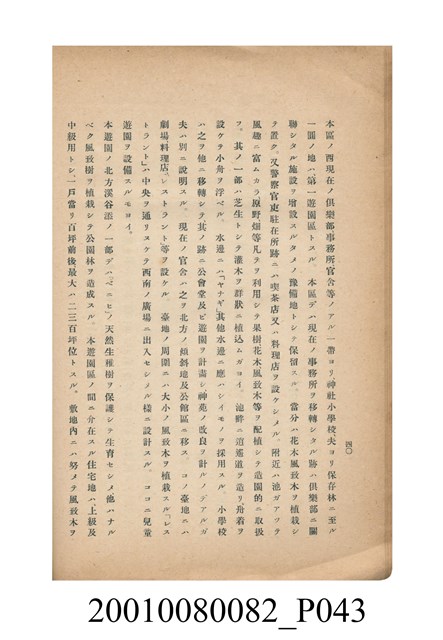 四〇
本區ノ西現在ノ俱樂部事務所官舍等ノアル一帶ヨリ、神社小學校夫ヨリ保存林ニ至ル
一團ノ地ハ第一遊園區トスル。本區デハ現在ノ事務所ヲ移轉シタル跡ハ俱樂部ニ關
聯シタル施設ヲ增設スルタメノ豫備地トシテ保留スル。當分ハ花木風致木ヲ植栽シ
テ置ク。又警察官吏駐在所跡ニハ喫茶店又ハ料理店ヲ設ケシメル。附近ハ池ガアツテ
風趣ニ富ムカラ原野畑等凡テヲ利用シテ果樹花木風致木等ヲ配植シテ造園的ニ取扱
フ。其ノ一部ハ芝生トシテ灌木ヲ群狀ニ植込ムガヨイ。池畔ニ逍遙道ヲ造リ、舟着ヲ
設ケテ小舟ヲ浮ベル。水邊ニハ「ヤナギ」其他水邊ニ應ハシイモノヲ採用スル。小學校
ハ之ヲ他ニ移轉シテ其ノ跡ニ公會堂及ビ遊園ヲ計畫シ、神苑ノ改良ヲ計ルノデアルガ
夫ハ別ニ說明スル。現在ノ官舍ハ之ヲ北方ノ傾斜地及公館區ニ移ス。コノ臺地ニハ
劇場料理店「レストラント等ヲ設ケル。臺地ノ周圍ニハ大小ノ風致木ヲ植栽スル「レス
トラント」ハ中央ヲ通リヌケテ西南ノ廣場ニ出入セシメル樣ニ設計スル。ココニ兒童
遊園ヲ設備スルモヨイ。
本遊園ノ北方溪谷澁ノ一部デハ「ベニヒ」ノ天然生稚樹ヲ保護シテ生育セシメ他ハナル
ベク風致樹ヲ植栽シテ公園林ヲ造成スル。本遊園區ノ間ニ介在スル住宅地ハ、上級及
中級用トシ、一戶當リ百坪前後最大ハ二三百坪位トスル。敷地內ニハ努メテ風致木ヲ
20010080082_P043